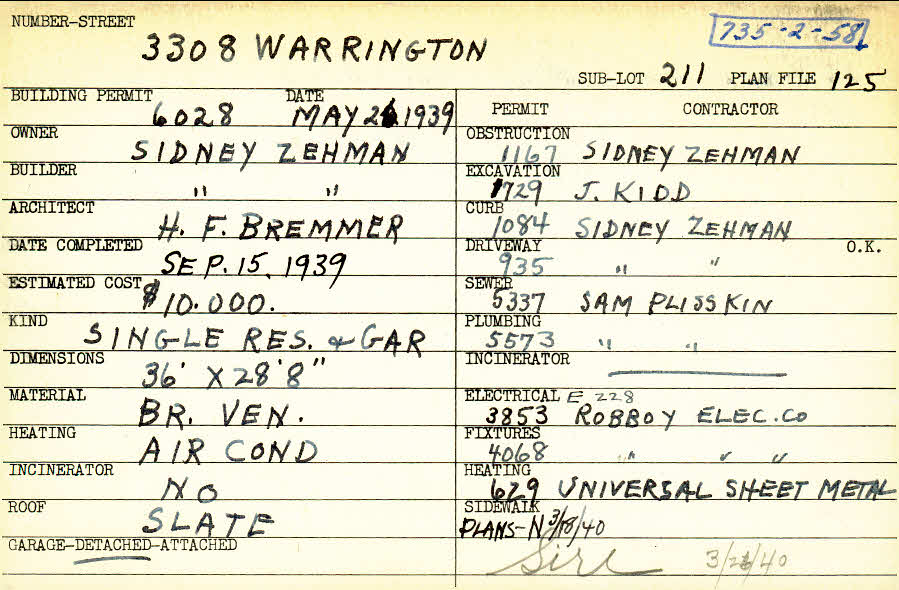 NUMBER-STREET
3308 WARRINGTON
735-2-58
SUB-LOT 211 PLAN FILE 125
BUILDING PERMIT 6028 DATE MAY 26 1939
OWNER SIDNEY ZEHMAN
BUILDER " "
ARCHITECT H. F. BREMMER
DATE COMPLETED SEP. 15, 1939
ESTIMATED COST $10.000.
KIND SINGLE RES. & GAR
DIMENSIONS 36' X 28'8"
MATERIAL BR. VEN.
HEATING AIR COND
INCINERATOR NO
ROOF SLATE
GARAGE-DETACHED-ATTACHED
PERMIT CONTRACTOR
OBSTRUCTION 1167 SIDNEY ZEHMAN
EXCAVATION 1729 J. KIDD
CURB 1084 SIDNEY ZEHMAN
DRIVEWAY 935 " " O.K.
SEWER 5337 SAM PLISSKIN
PLUMBING 5573 " "
INCINERATOR
ELECTRICAL E 228
3853 ROBBOY ELEC. CO
FIXTURES 4068 " " "
HEATING 629 UNIVERSAL SHEET METAL
SIDEWALK
PLANS-N 3/18/40
3/26/40